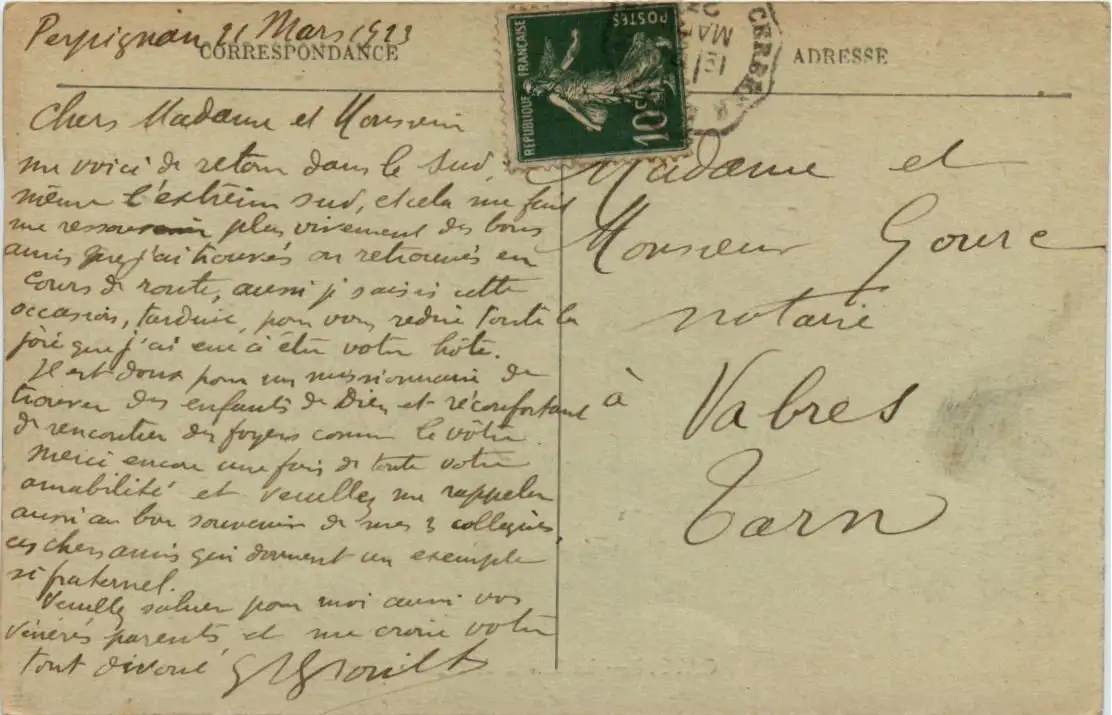 Perpignan 21 Mars 1923
CORRESPONDANCE
Chers Madame et Monsieur
me voici de retour dans le sud,
même l'extrême sud, et cela me fait
me ressouvenir plus vivement des bons
amis que j'ai trouvés ou retrouvés en
cours de route, aussi je saisis cette
occasion, tardive, pour vous redire toute la
joie que j'ai eue à être votre hôte.
Il est doux pour un missionnaire de
trouver des enfants de Dieu et réconfortant
de rencontrer des foyers comme le vôtre.
Merci encore une fois de toute votre
amabilité et veuillez me rappeler
aussi au bon souvenir de mes 3 collègues,
ces chers amis qui donnent un exemple
si fraternel.
Veuillez saluer pour moi aussi vos
vénérés parents et me croire votre
tout dévoué
REPUBLIQUE FRANÇAISE
POSTES
10c
ADRESSE
Madame et
Monsieur Gourc
notaire
à Vabres
Tarn